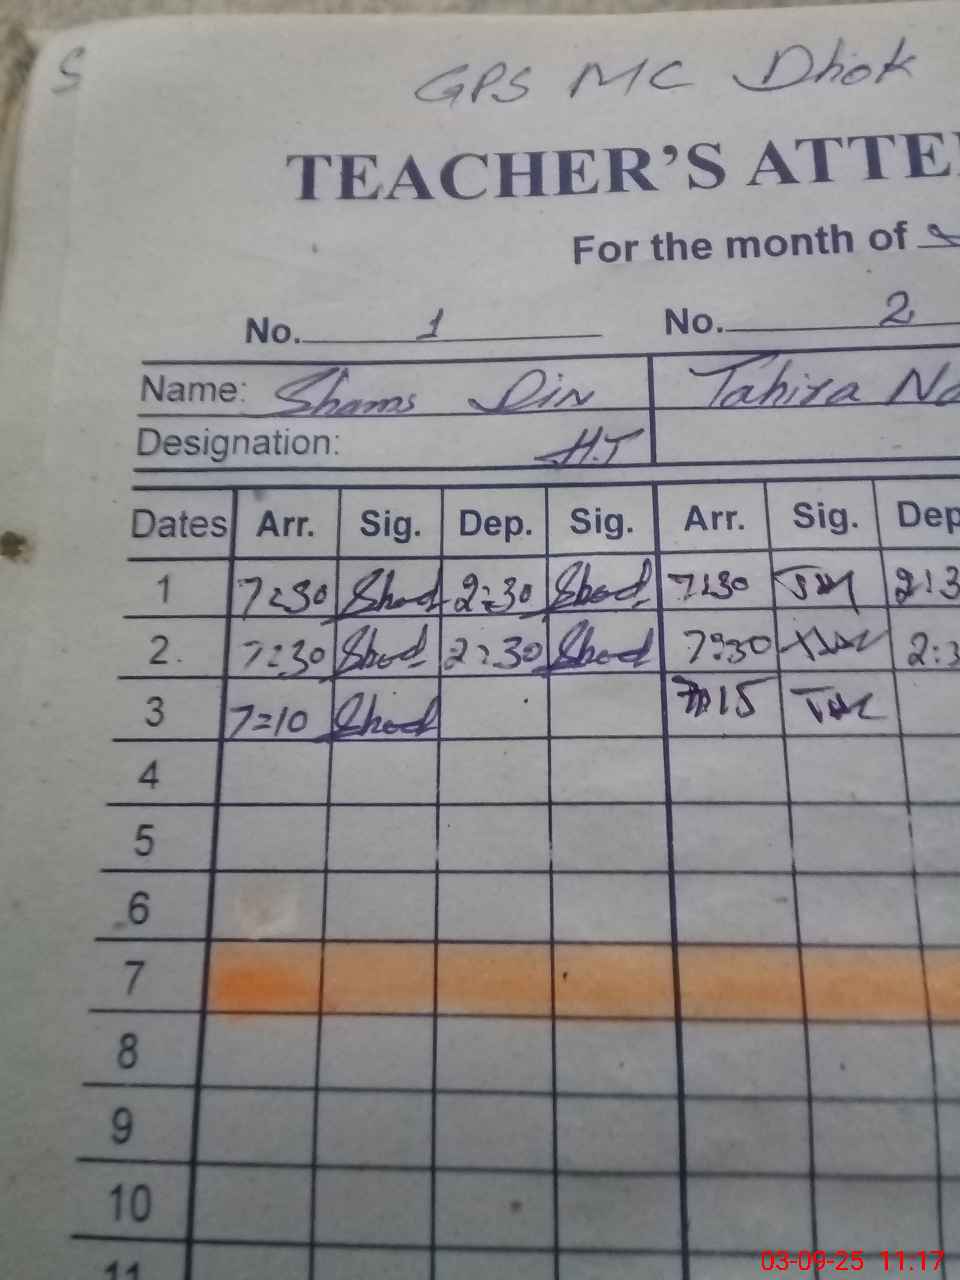 S
GPS MC Dhok
TEACHER'S ATTE
For the month of
No. 1 No. 2
Name: Shams Din Tahira Na
Designation: H.T
Dates Arr. Sig. Dep. Sig. Arr. Sig. Dep
1 7:30 2:30 7:30 2:3
2. 7:30 2:30 7:30 2:3
3 7=10 7:15
4
5
6
7
8
9
10
11
03-09-25 11.17